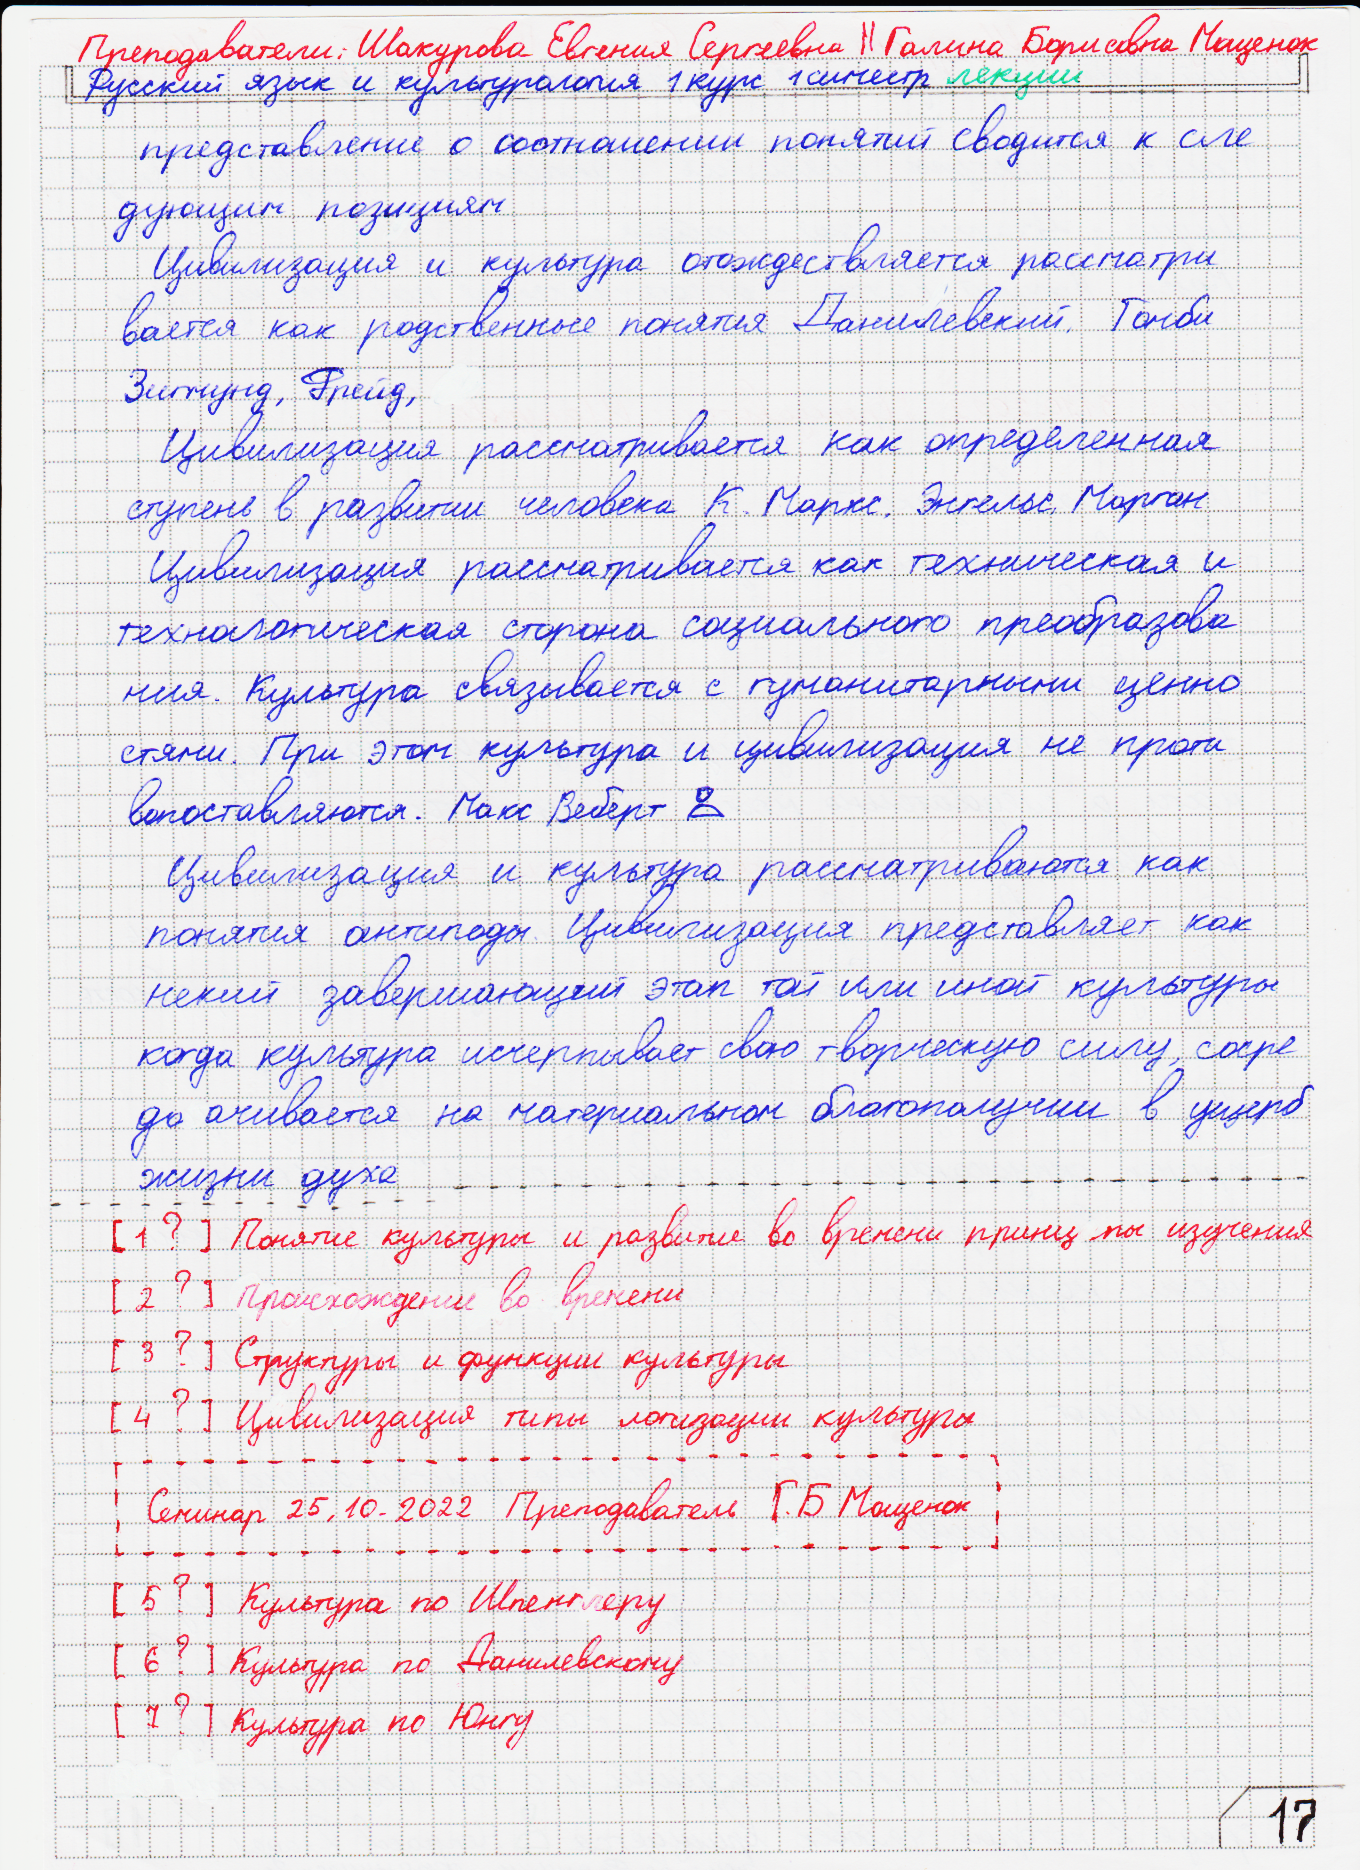 Преподаватели: Шакурова Евгения Сергеевна || Галина Борисовна Мащенок
Русский язык и культурология 1 курс 1 симестр лекции
представление о соотношении понятий сводится к сле
дующим позициям
Цивилизация и культура отождествляется рассматри
вается как родственные понятия Данилевский. Тонби
Зигмунд, Фрейд,
Цивилизация рассматривается как определенная
ступень в развитии человека К. Маркс. Энгельс, Морган
Цивилизация рассматривается как техническая и
технологическая сторона социального преобразова
ния. Культура связывается с гуманитарными ценно
стями. При этом культура и цивилизация не проти
вопоставляются. Макс Веберт
Цивилизация и культура рассматриваются как
понятия антиподы. Цивилизация представляет как
некий завершающий этап той или иной культуры
когда культура исчерпывает свою творческую силу, сосре
до ачивается на материальном благополучии в ущерб
жизни духа
[ 1 ? ] Понятие культуры и развитие во времени принц пы изучения
[ 2 ? ] Происхождение во времени
[ 3 ? ] Структуры и функции культуры
[ 4 ? ] Цивилизация типы логизации культуры
Семинар 25.10-2022 Преподаватель Г.Б Мащенок
[ 5 ? ] Культура по Шпенглеру
[ 6 ? ] Культура по Данилевскому
[ 7 ? ] Культура по Юнгу
17